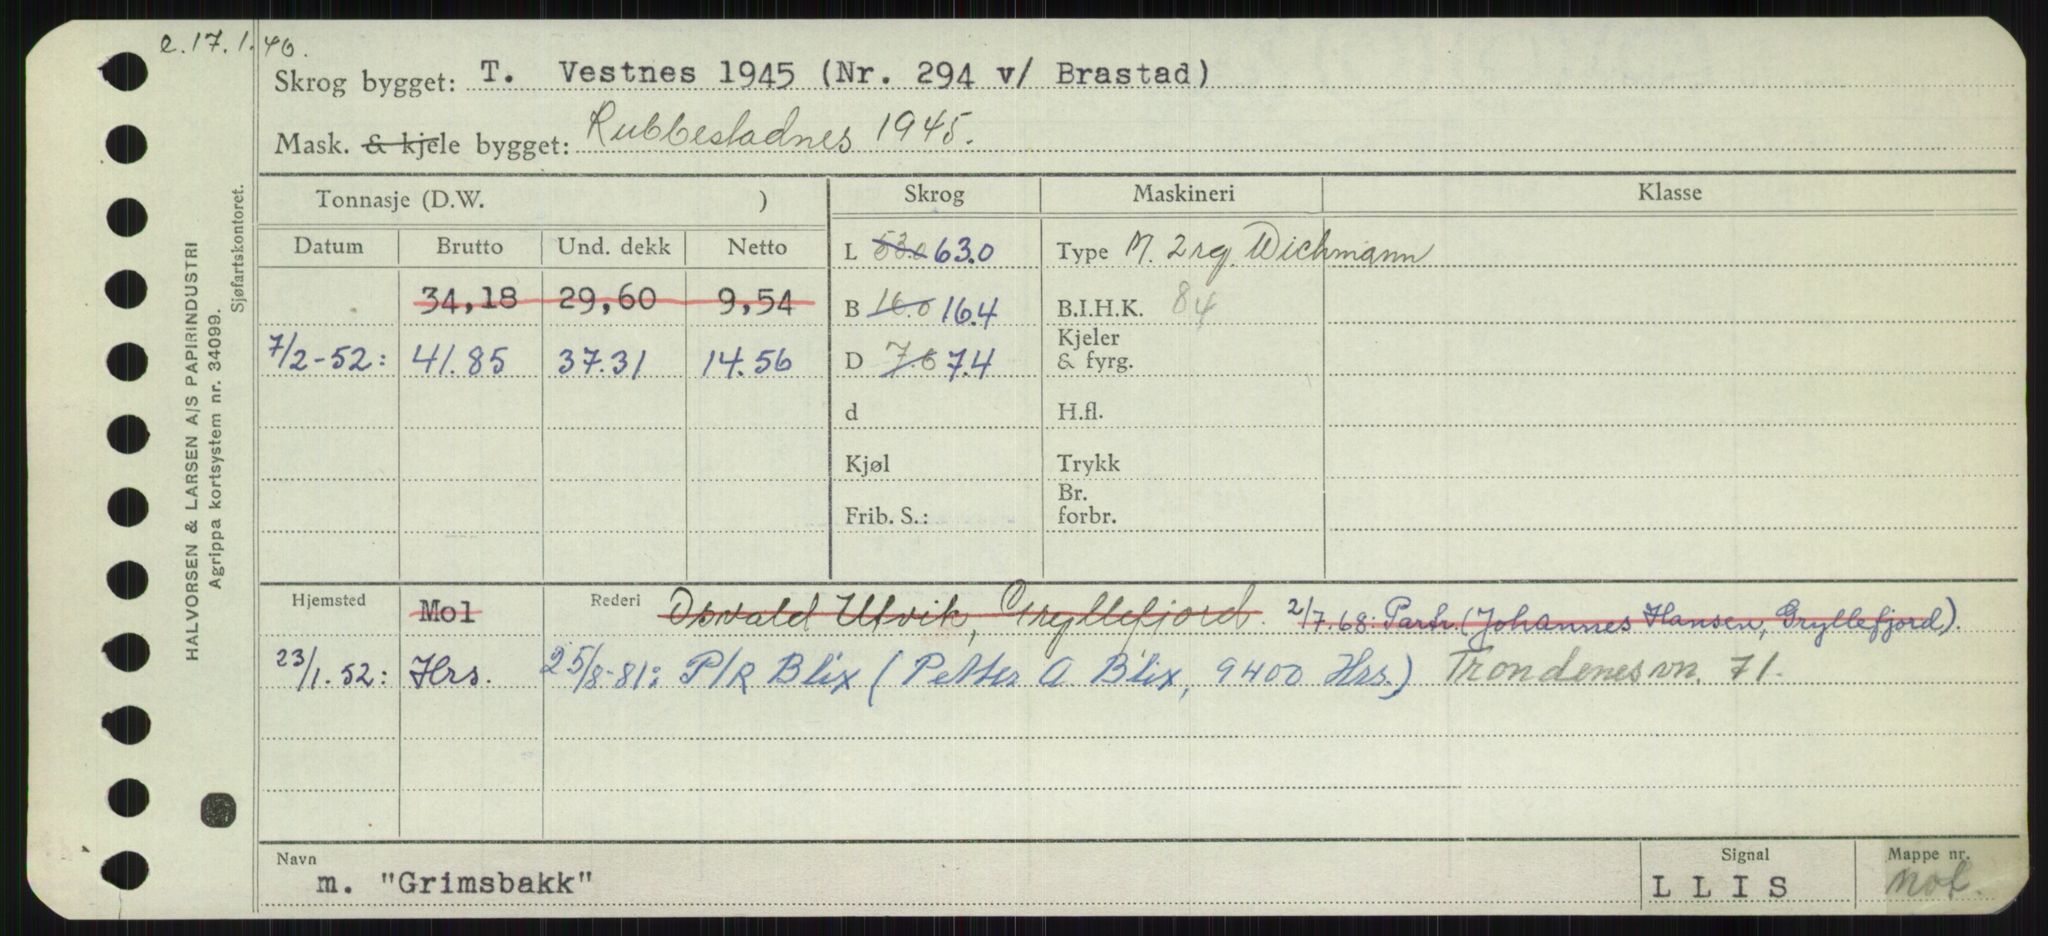 e. 17. 1. 46.
Skrog bygget: T. Vestnes 1945 (Nr. 294 v/ Brastad)
Mask. & kjele bygget: Rubbestadnes 1945.
HALVORSEN & LARSEN A/S PAPIRINDUSTRI
Agrippa kortsystem nr. 34099.
Sjøfartskontoret.
Tonnasje (D.W. ) Skrog Maskineri Klasse
Datum Brutto Und. dekk Netto
L 53.0 63.0 Type M. 2 rg. Wichmann
34,18 29,60 9,54 B 16.0 16.4 B.I.H.K. 84
7/2-52: 41.85 37.31 14.56 D 7.6 7.4 Kjeler & fyrg.
d H.fl.
Kjøl Trykk
Frib. S.: Br. forbr.
Hjemsted Mol Rederi Osvald Utvik, Gryllefjord. 2/7.68: Partr. (Johannes Hansen, Gryllefjord).
23/1.52: Hrs. 25/8-81: P/R Blix (Petter A Blix, 9400 Hrs.) Trondenesvn. 71.
Navn Signal Mappe nr.
m. "Grimsbakk" L L I S not.